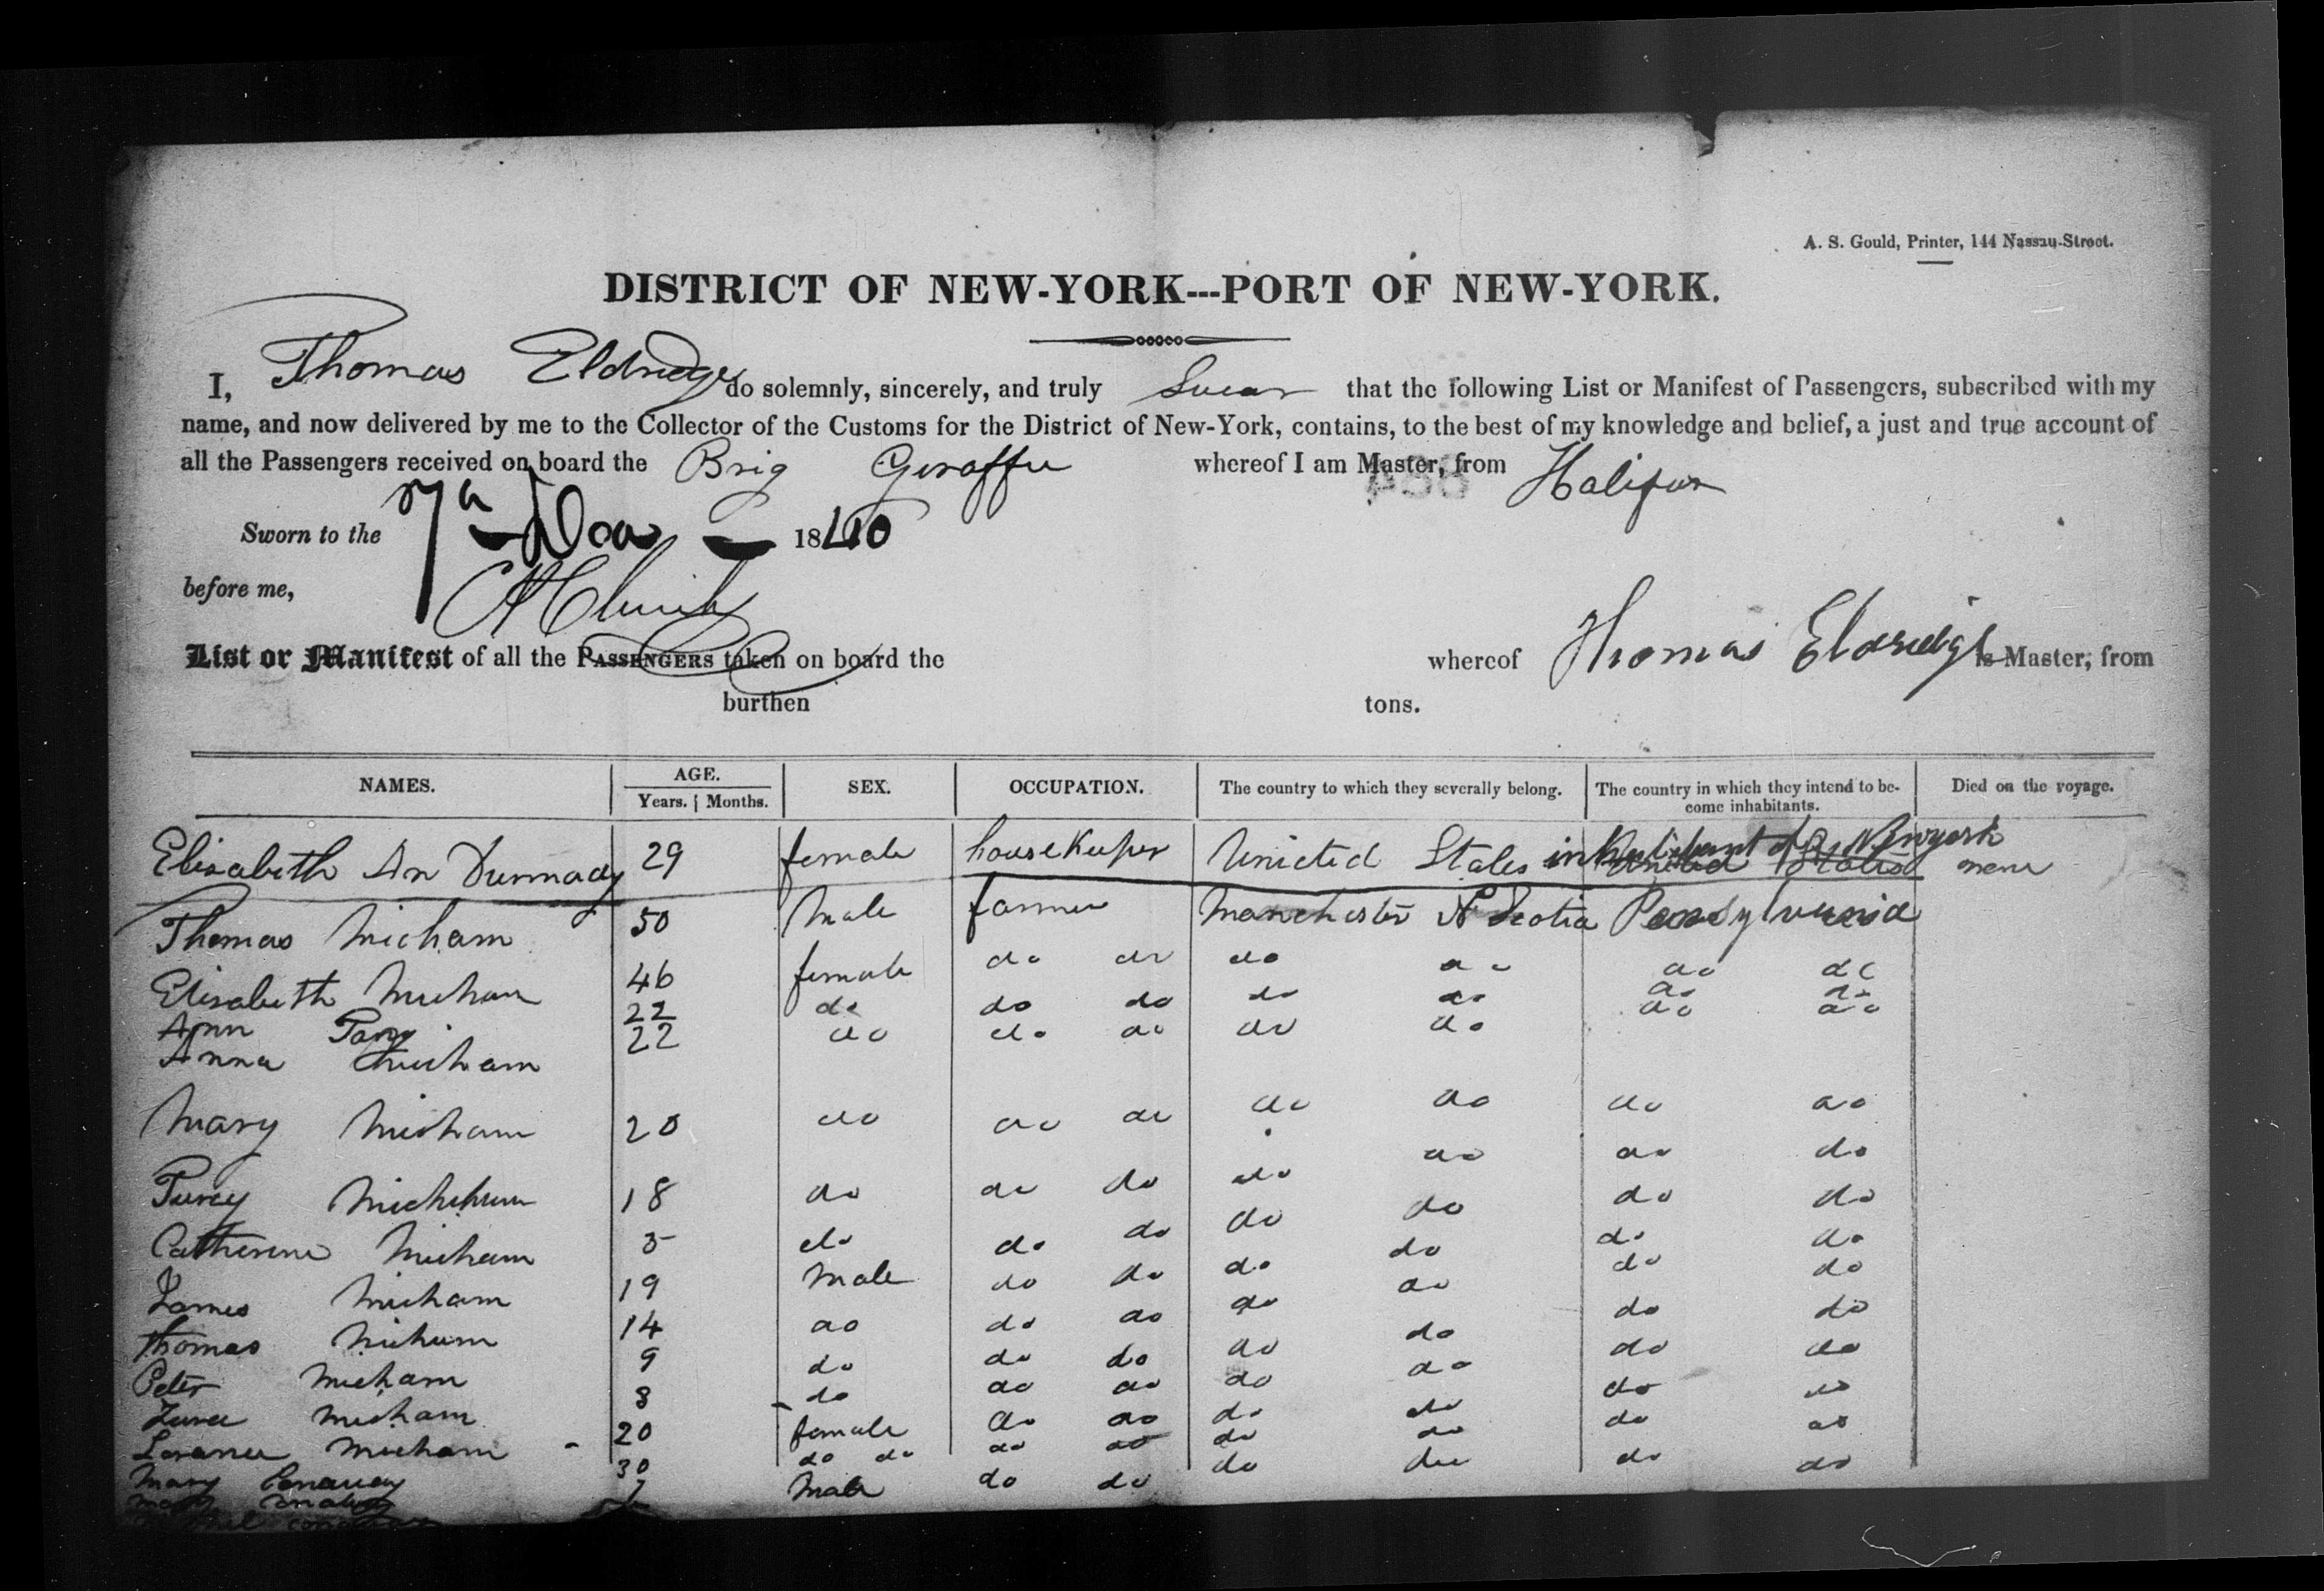 A. S. Gould, Printer, 144 Nassau-Street.
DISTRICT OF NEW-YORK---PORT OF NEW-YORK.
I, Thomas Eldredge do solemnly, sincerely, and truly Swear that the following List or Manifest of Passengers, subscribed with my
name, and now delivered by me to the Collector of the Customs for the District of New-York, contains, to the best of my knowledge and belief, a just and true account of
all the Passengers received on board the Brig Giraffe whereof I am Master, from Halifax
Sworn to the 7 1840
before me,
List or Manifest of all the PASSENGERS taken on board the whereof Thomas Eldredge is Master, from
burthen tons.
NAMES. AGE. SEX. OCCUPATION. The country to which they severally belong. The country in which they intend to be- Died on the voyage.
Years. Months. come inhabitants.
Elisabeth An 29 female housekeeper Unicted States inhabitant of Newyork none
Thomas Micham 50 Male farmer Manchester N Scotia Pensylvania
Elisabeth Micham 46 female do do do do do do
Ann 22 do do do do do do do
Anna Micham 22 do do do do do do do
Mary Micham 20 do do do do do do do
Micham 18 do do do do do do do
Catherine Micham 5 do do do do do do do
James Micham 19 Male do do do do do do
Thomas Micham 14 do do do do do do do
Peter Micham 9 do do do do do do do
Micham 8 do do do do do do do
Micham 20 female do do do do do do
Mary 30 do do do do do do do do
7 Male do do do do do do